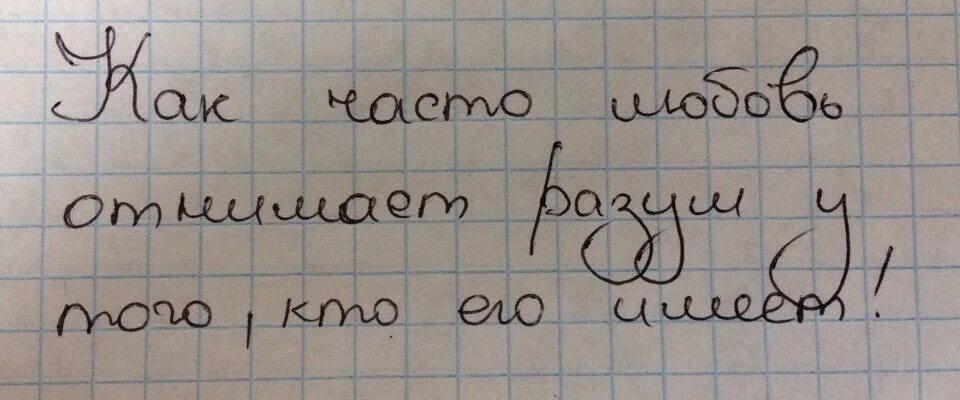 Как часто любовь
отнимает разум у
того, кто его имеет!